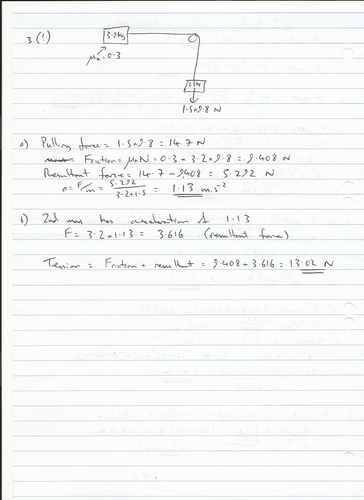 3.(!)
3.2kg
μk = 0.3
1.5kg
1.5×9.8 N
a) Pulling force = 1.5×9.8 = 14.7 N
Friction = μkN = 0.3×3.2×9.8 = 9.408 N
Resultant force = 14.7 - 9.408 = 5.292 N
a = F/m = 5.292/3.2+1.5 = 1.13 m.s⁻²
b) 2nd mass has acceleration of 1.13
F = 3.2×1.13 = 3.616 (resultant force)
Tension = Friction + resultant = 9.408 + 3.616 = 13.02 N